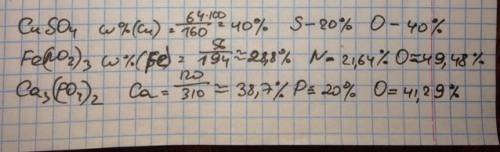 CuSO4 w%(Cu) = 64·100/160 = 40% S-20% O-40%
Fe(NO2)3 w%(Fe) = 56/194 ≈ 28,8% N= 21,64% O≈49,48%
Ca3(PO4)2 Ca = 120/310 ≈ 38,7% P≈20% O=41,29%